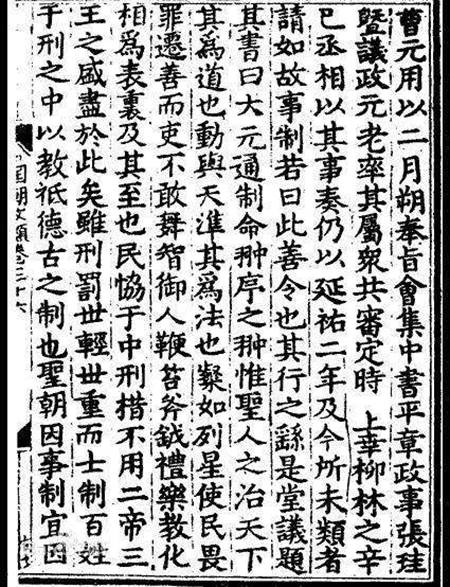 曹元用以二月朔奉旨會集中書平章政事張珪
暨議政元老率其屬衆共審定時 上幸柳林之辛
巳丞相以其事奏仍以延祐二年及今所未類者
請如故事制若曰此善令也其行之繇是堂議題
其書曰大元通制命翀序之翀惟聖人之治天下
其爲道也動與天準其爲法也如列星使民畏
罪遷善而吏不敢舞智御人鞭笞斧鉞禮樂教化
相爲表裏及其至也民恊于中刑措不用二帝三
王之盛盡於此矣雖刑罰丗輕丗重而士制百姓
于刑之中以教祗德古之制也聖朝因事制宜因
國朝文類卷三十六